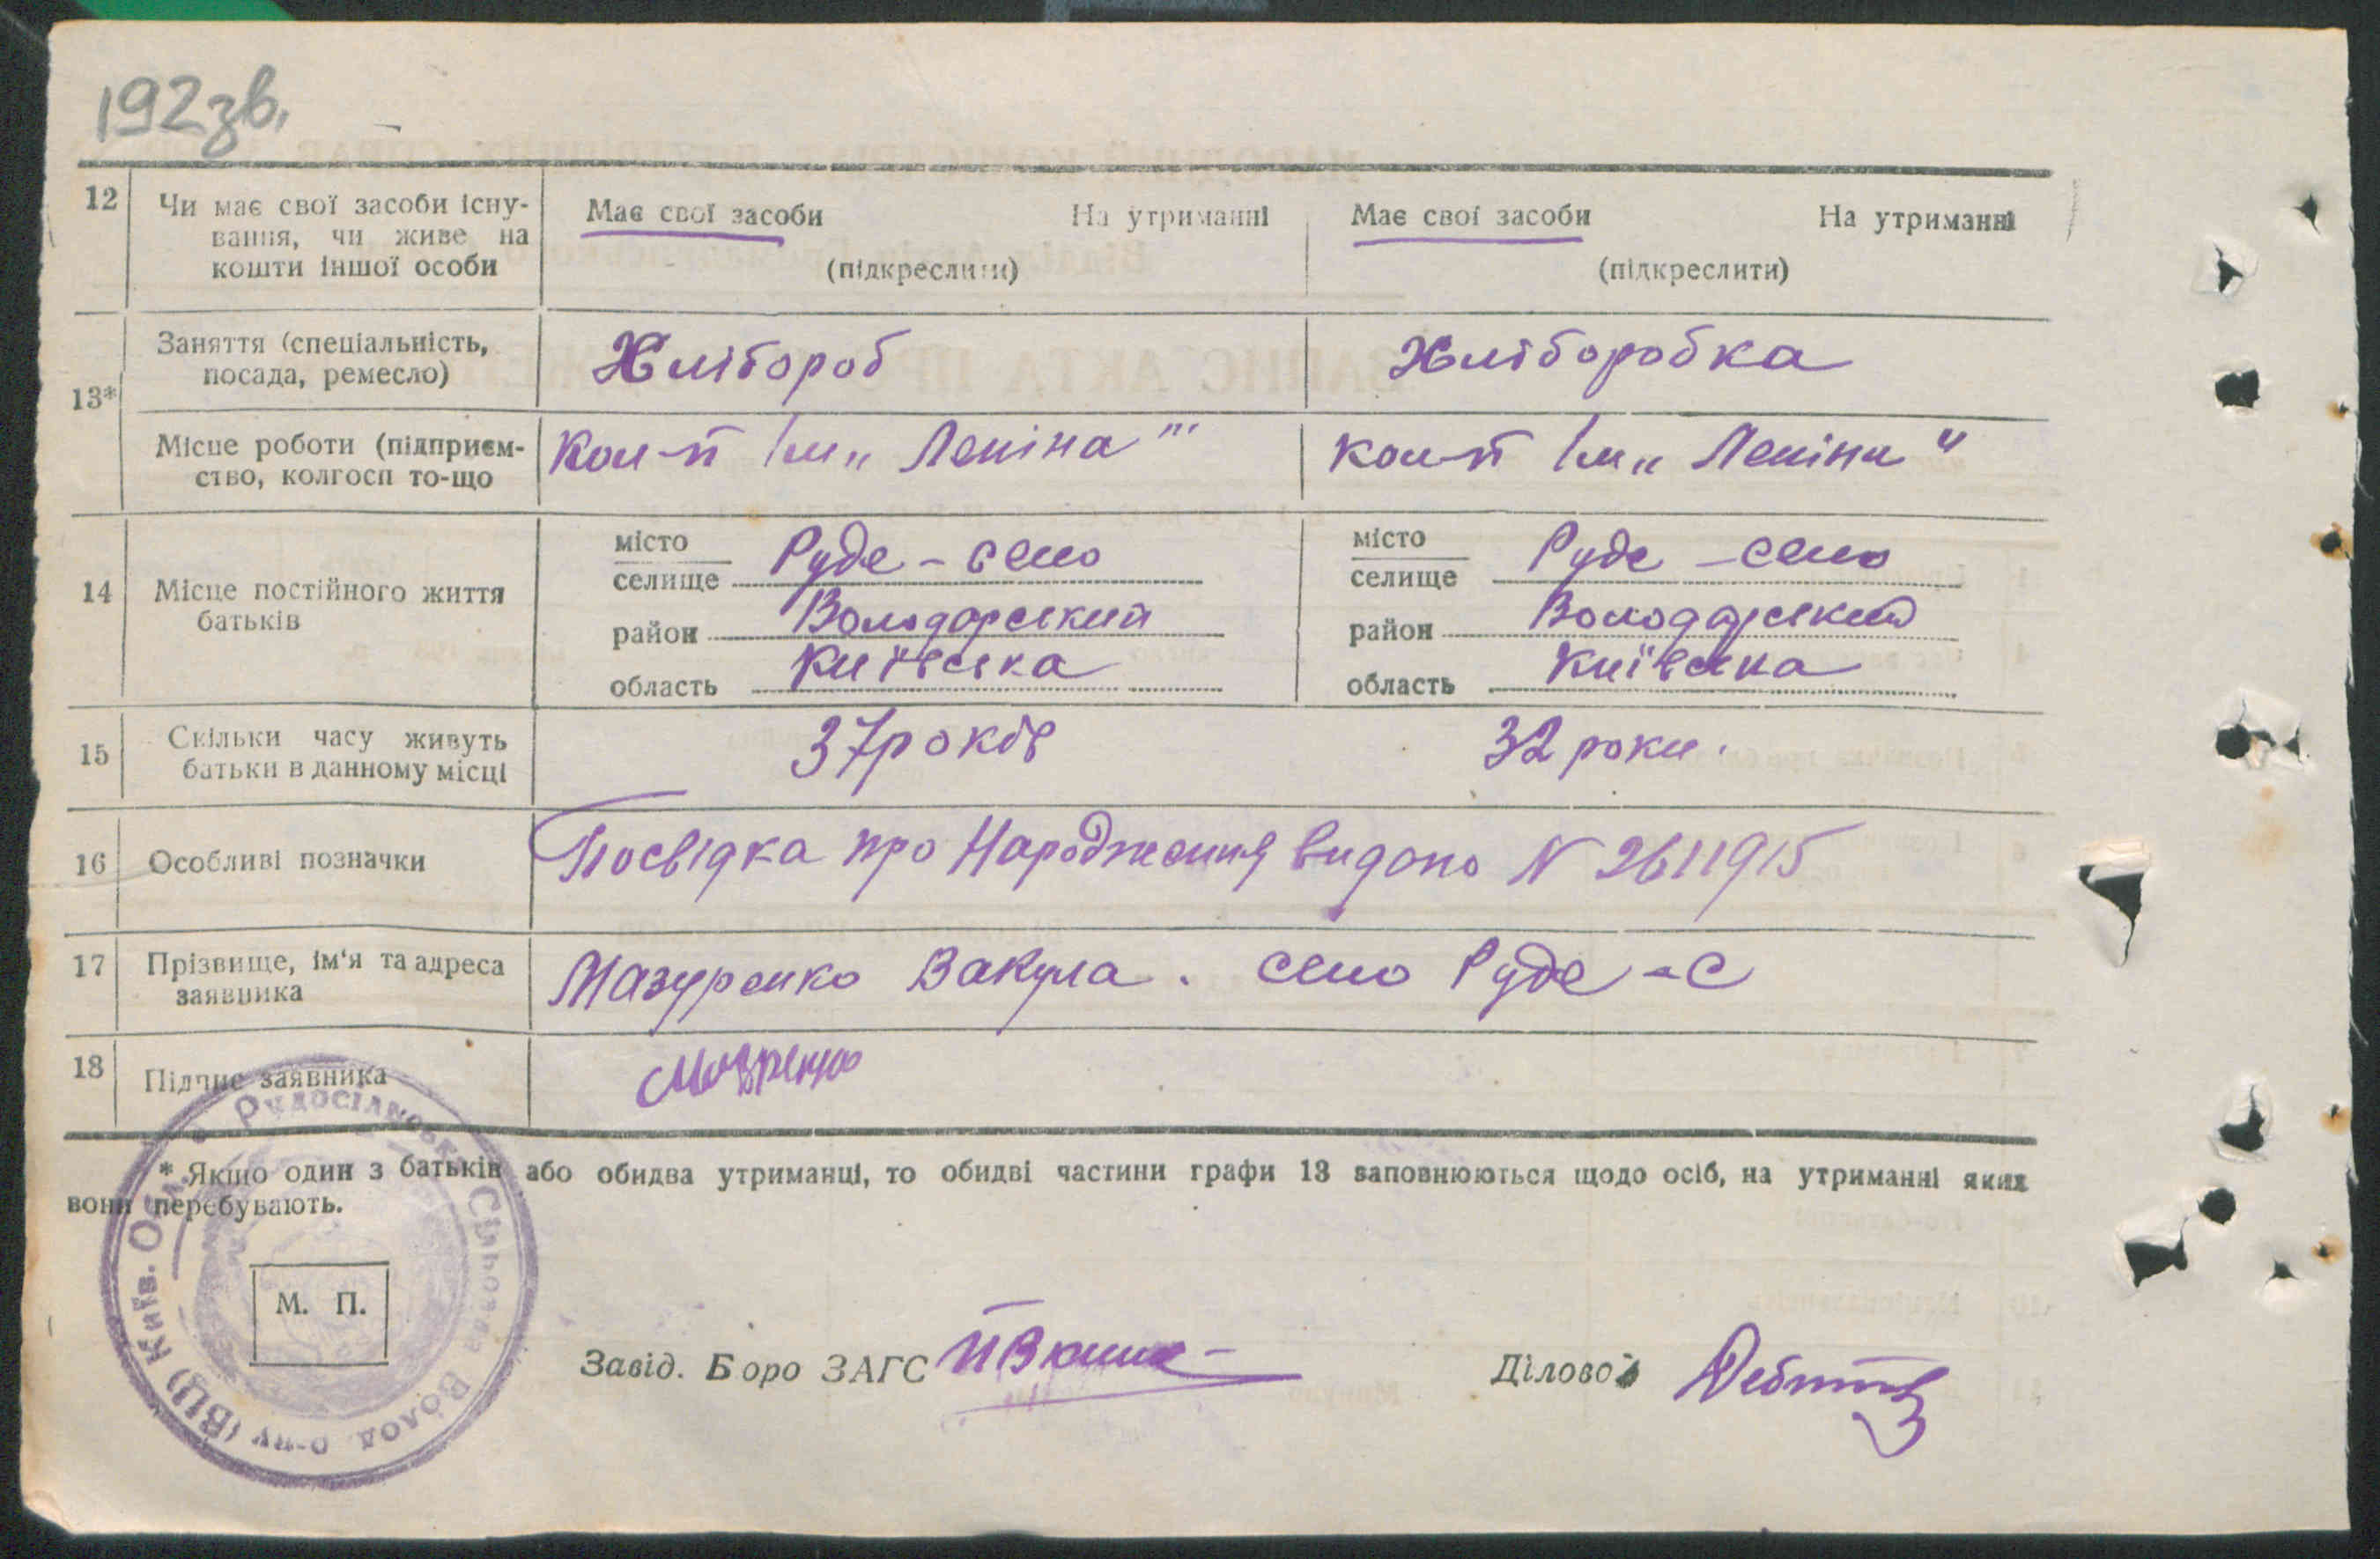 192зв.
12 Чи має свої засоби існу- Має свої засоби На утриманні Має свої засоби На утриманні
вання, чи живе на
кошти іншої особи (підкреслити) (підкреслити)
13* Заняття (спеціальність, Хлібороб Хліборобка
посада, ремесло)
Місце роботи (підприєм- Кол-п Ім „Леніна" кол-п Ім „Леніна"
ство, колгосп то-що
14 Місце постійного життя батьків
місто Руде-село місто Руде-село
селище селище
район Володарський район Володарський
область Київська область Київська
15 Скільки часу живуть 37років 32 роки.
батьки в данному місці
16 Особливі позначки Посвідка про Народження видано N 2611915
17 Прізвище, ім'я та адреса Мазуренко Вакула. село Руде-С
заявника
18 Підпис заявника
* Якщо один з батьків або обидва утриманці, то обидві частини графи 13 заповнюються щодо осіб, на утриманні яких
вони перебувають.
М. П.
Завід. Бюро ЗАГС Діловод
Рудосільськ Сільськ Волод. р-ну (ВЦ) Київ. Обл.